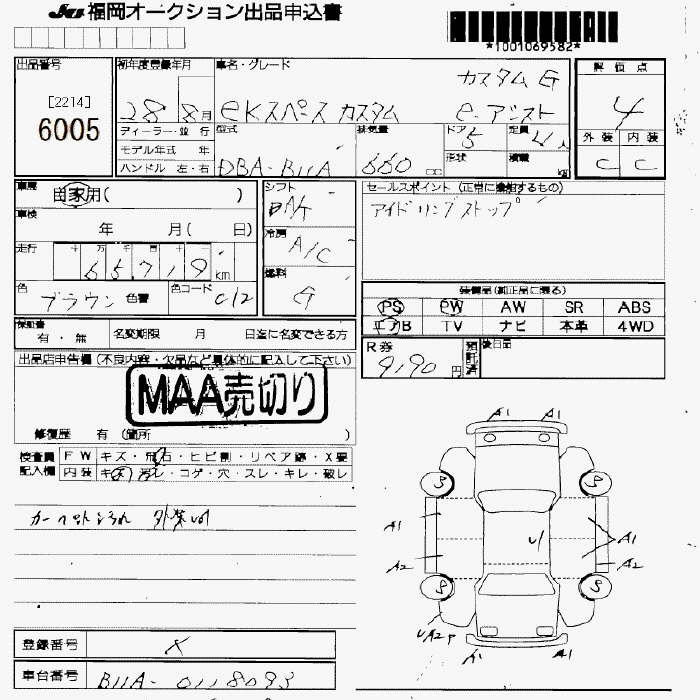 JU 福岡オークション出品申込書
*1001069582*
出品番号
[2214]
6005
初年度登録年月
28 8月
車名・グレード
カスタム G
eKスペース カスタム e-アシスト
評価点
4
外装 内装
C C
ディーラー・並行
モデル年式 年
ハンドル 左・右
型式
DBA-B11A
排気量
660 cc
ドア 5
定員 4人
形状
積載 kg
車歴
自家用( )
車検
年 月( 日)
走行
十 万 千 百 十 一
65719 km
色
ブラウン 色替
色コード
C12
シフト
冷房
A/C
燃料
G
セールスポイント (正常に機能するもの)
アイドリングストップ
装備品(純正品に限る)
PS PW AW SR ABS
エアB TV ナビ 本革 4WD
保証書
有・無
名変期限 月 日迄に名変できる方
R券
9,190 円
預託済
後日品
出品店申告欄 (不良内容・欠品など具体的に記入して下さい)
MAA売切り
修復歴 有 (箇所 )
検査員記入欄
FW キズ・飛石・ヒビ割・リペア跡・X要
内装 キズ・汚レ・コゲ・穴・スレ・キレ・破レ
A1 A1
S S
A1 U A1
A2 A2
S S
UA2P
A1 A1
登録番号
X
車台番号
B11A-0118093